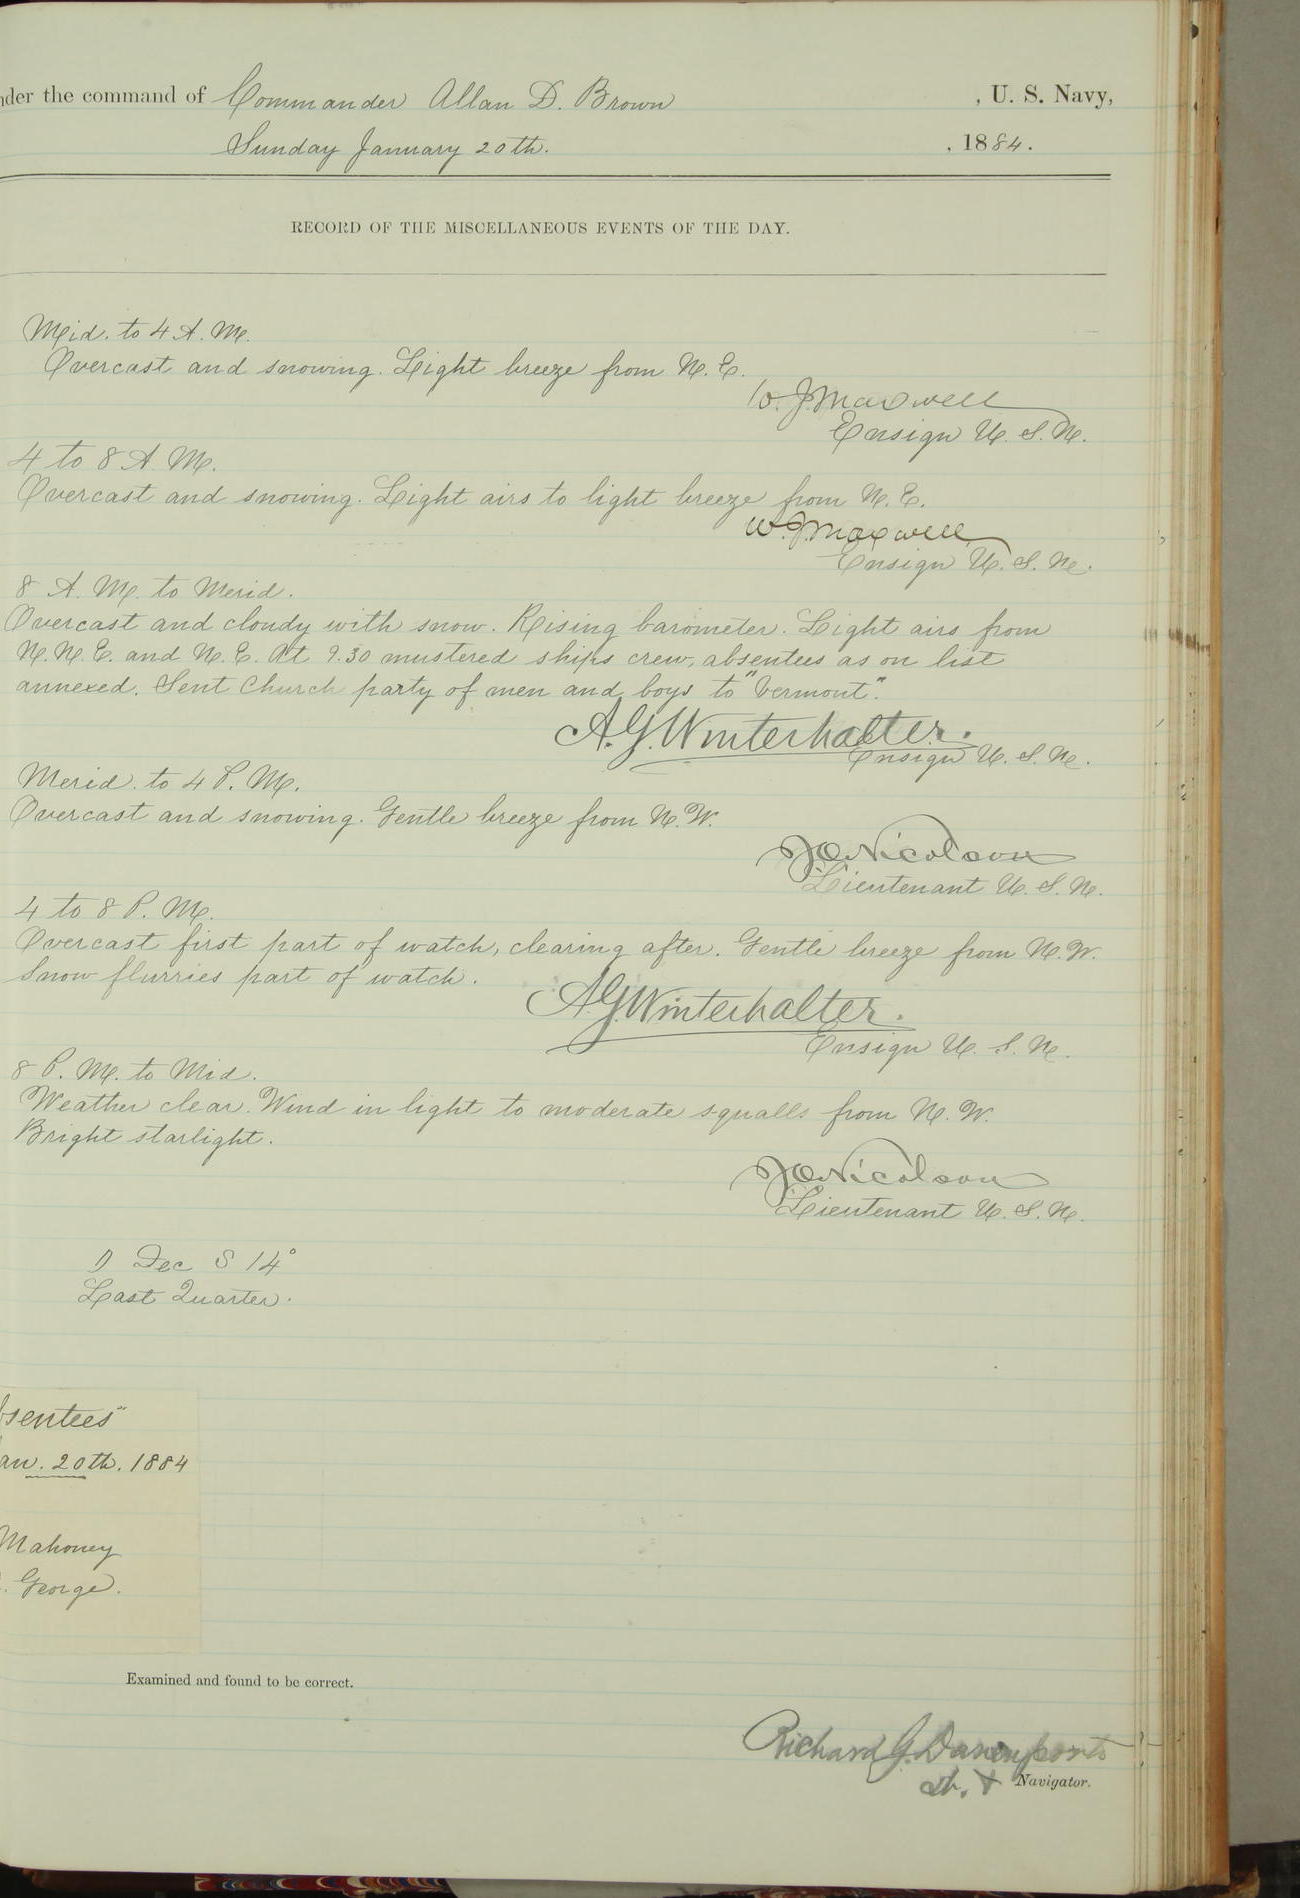 nder the command of Commander Allan D. Brown , U. S. Navy,
Sunday January 20th. , 1884.
RECORD OF THE MISCELLANEOUS EVENTS OF THE DAY.
Mid. to 4 A. M.
Overcast and snowing. Light breeze from N. E.
W. J. Maxwell
Ensign U. S. N.
4 to 8 A. M.
Overcast and snowing. Light airs to light breeze from N. E.
W. J. Maxwell
Ensign U. S. N.
8 A. M. to Merid.
Overcast and cloudy with snow. Rising barometer. Light airs from
N. N. E. and N. E. At 9.30 mustered ships crew, absentees as on list
annexed. Sent Church party of men and boys to "Vermont".
A. G. Winterhalter.
Ensign U. S. N.
Merid. to 4 P. M.
Overcast and snowing. Gentle breeze from N. W.
J O Nicolson
Lieutenant U. S. N.
4 to 8 P. M.
Overcast first part of watch, clearing after. Gentle breeze from N. W.
Snow flurries part of watch.
A. G. Winterhalter.
Ensign U. S. N.
8 P. M. to Mid.
Weather clear. Wind in light to moderate squalls from N. W.
Bright starlight.
J O Nicolson
Lieutenant U. S. N.
Dec S 14°
Last Quarter.
bsentees"
an. 20th. 1884
Mahoney
. George.
Examined and found to be correct.
Richard G. Davenport
Navigator.